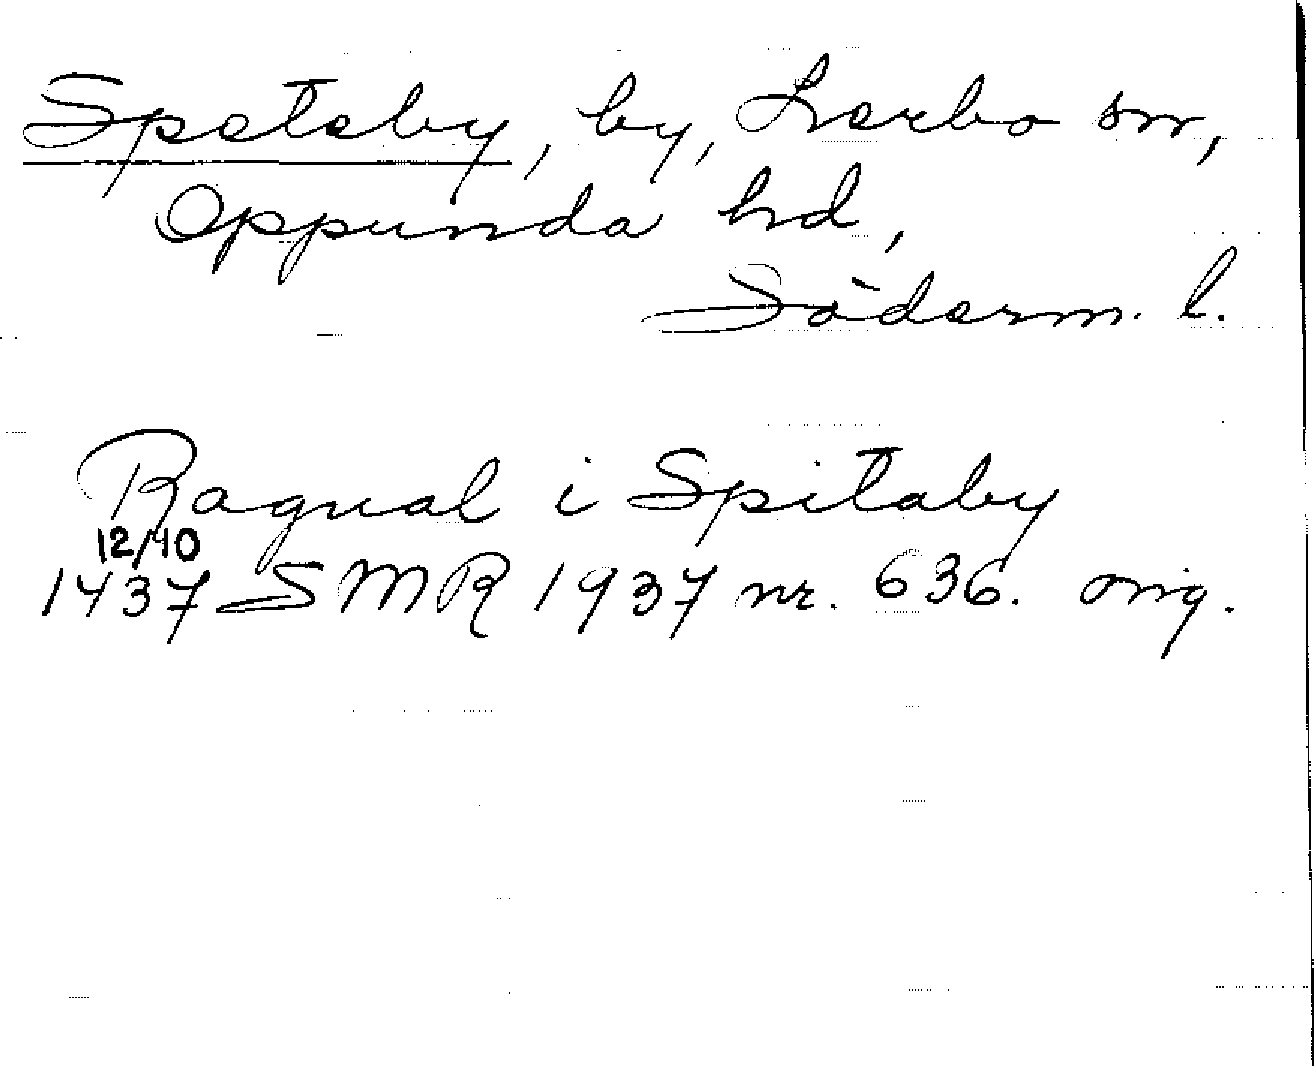 Speteby, by, Lerbo sn,
Oppunda hd,
Söderm. l.
Ragual i Spitaby
12/10
1437 SMR 1937 nr. 636. orig.